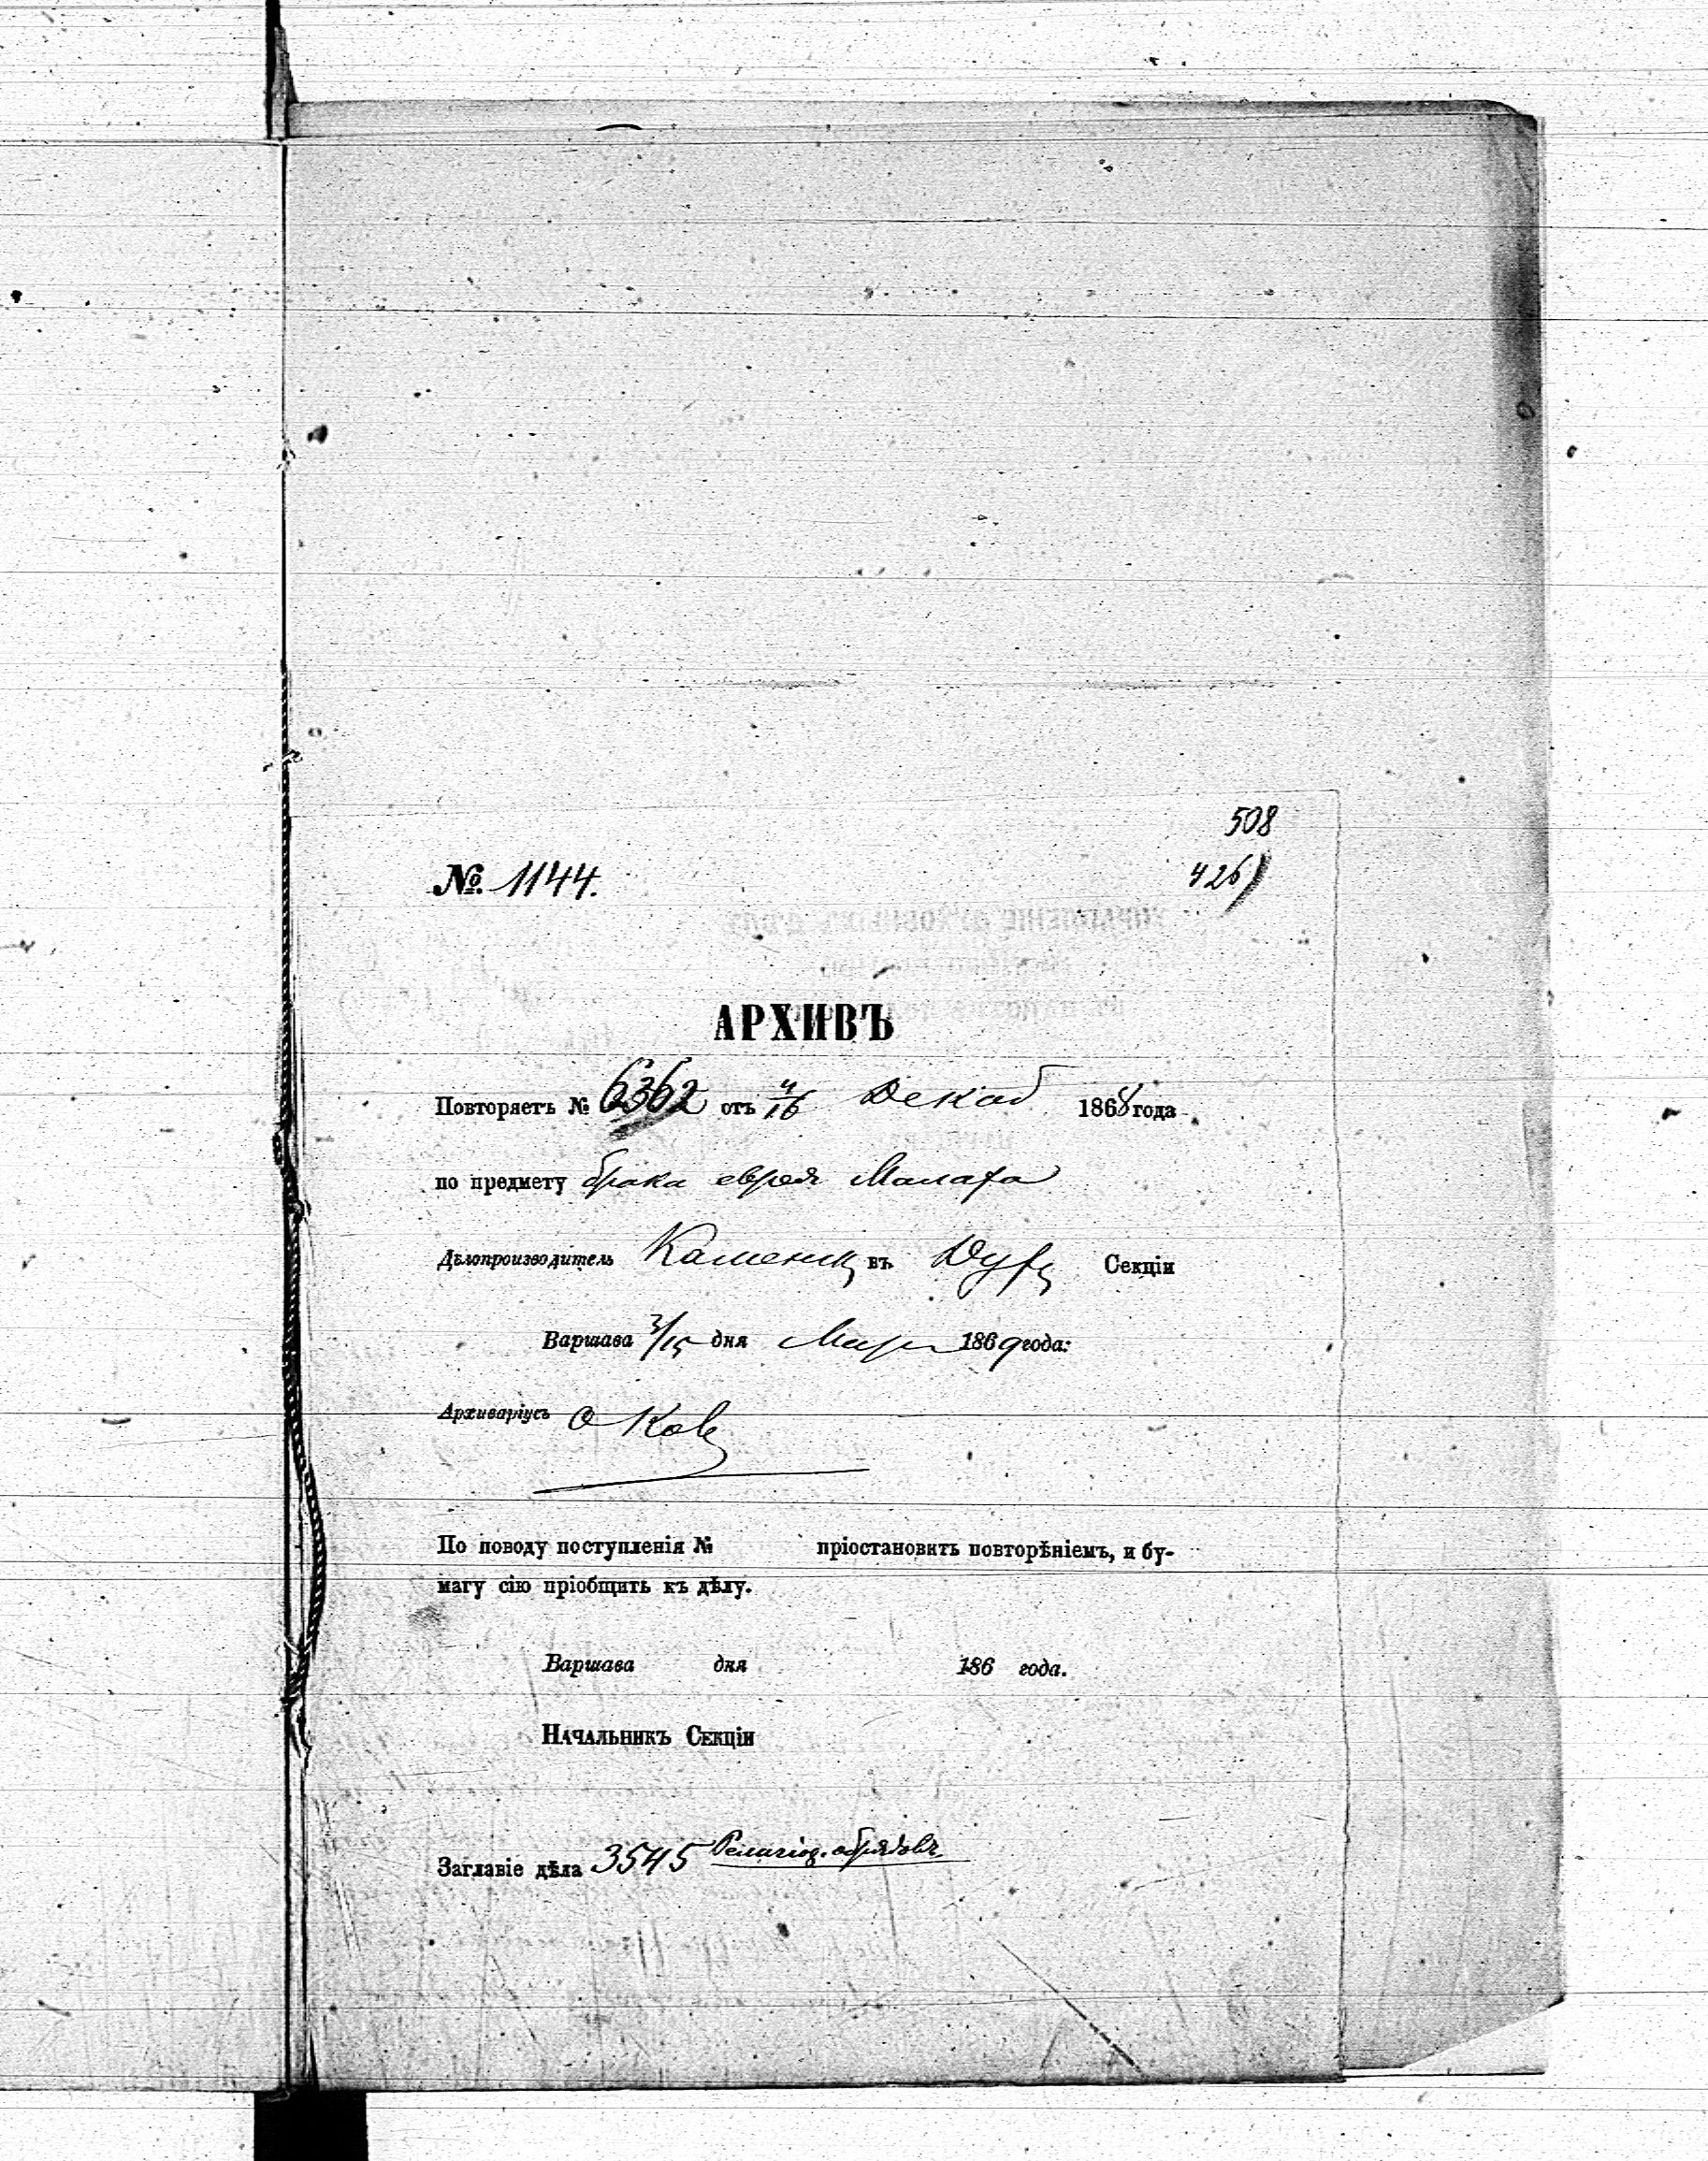 508
№ 1144. 426
АРХИВЪ
Повторяетъ № 6362 отъ 4/16 Декаб 1868 года
по предмету брака еврея Малаха
Дѣлопроизводитель въ Секціи
Варшава 3/15 дня Мар 1869 года:
Архиваріусъ
По поводу поступленія № пріостановить повторѣніемъ, и бу-
магу сію пріобщить къ дѣлу.
Варшава дня 186 года.
Начальникъ Секціи
Заглавіе дѣла 3545 Религіоз. обрядовъ